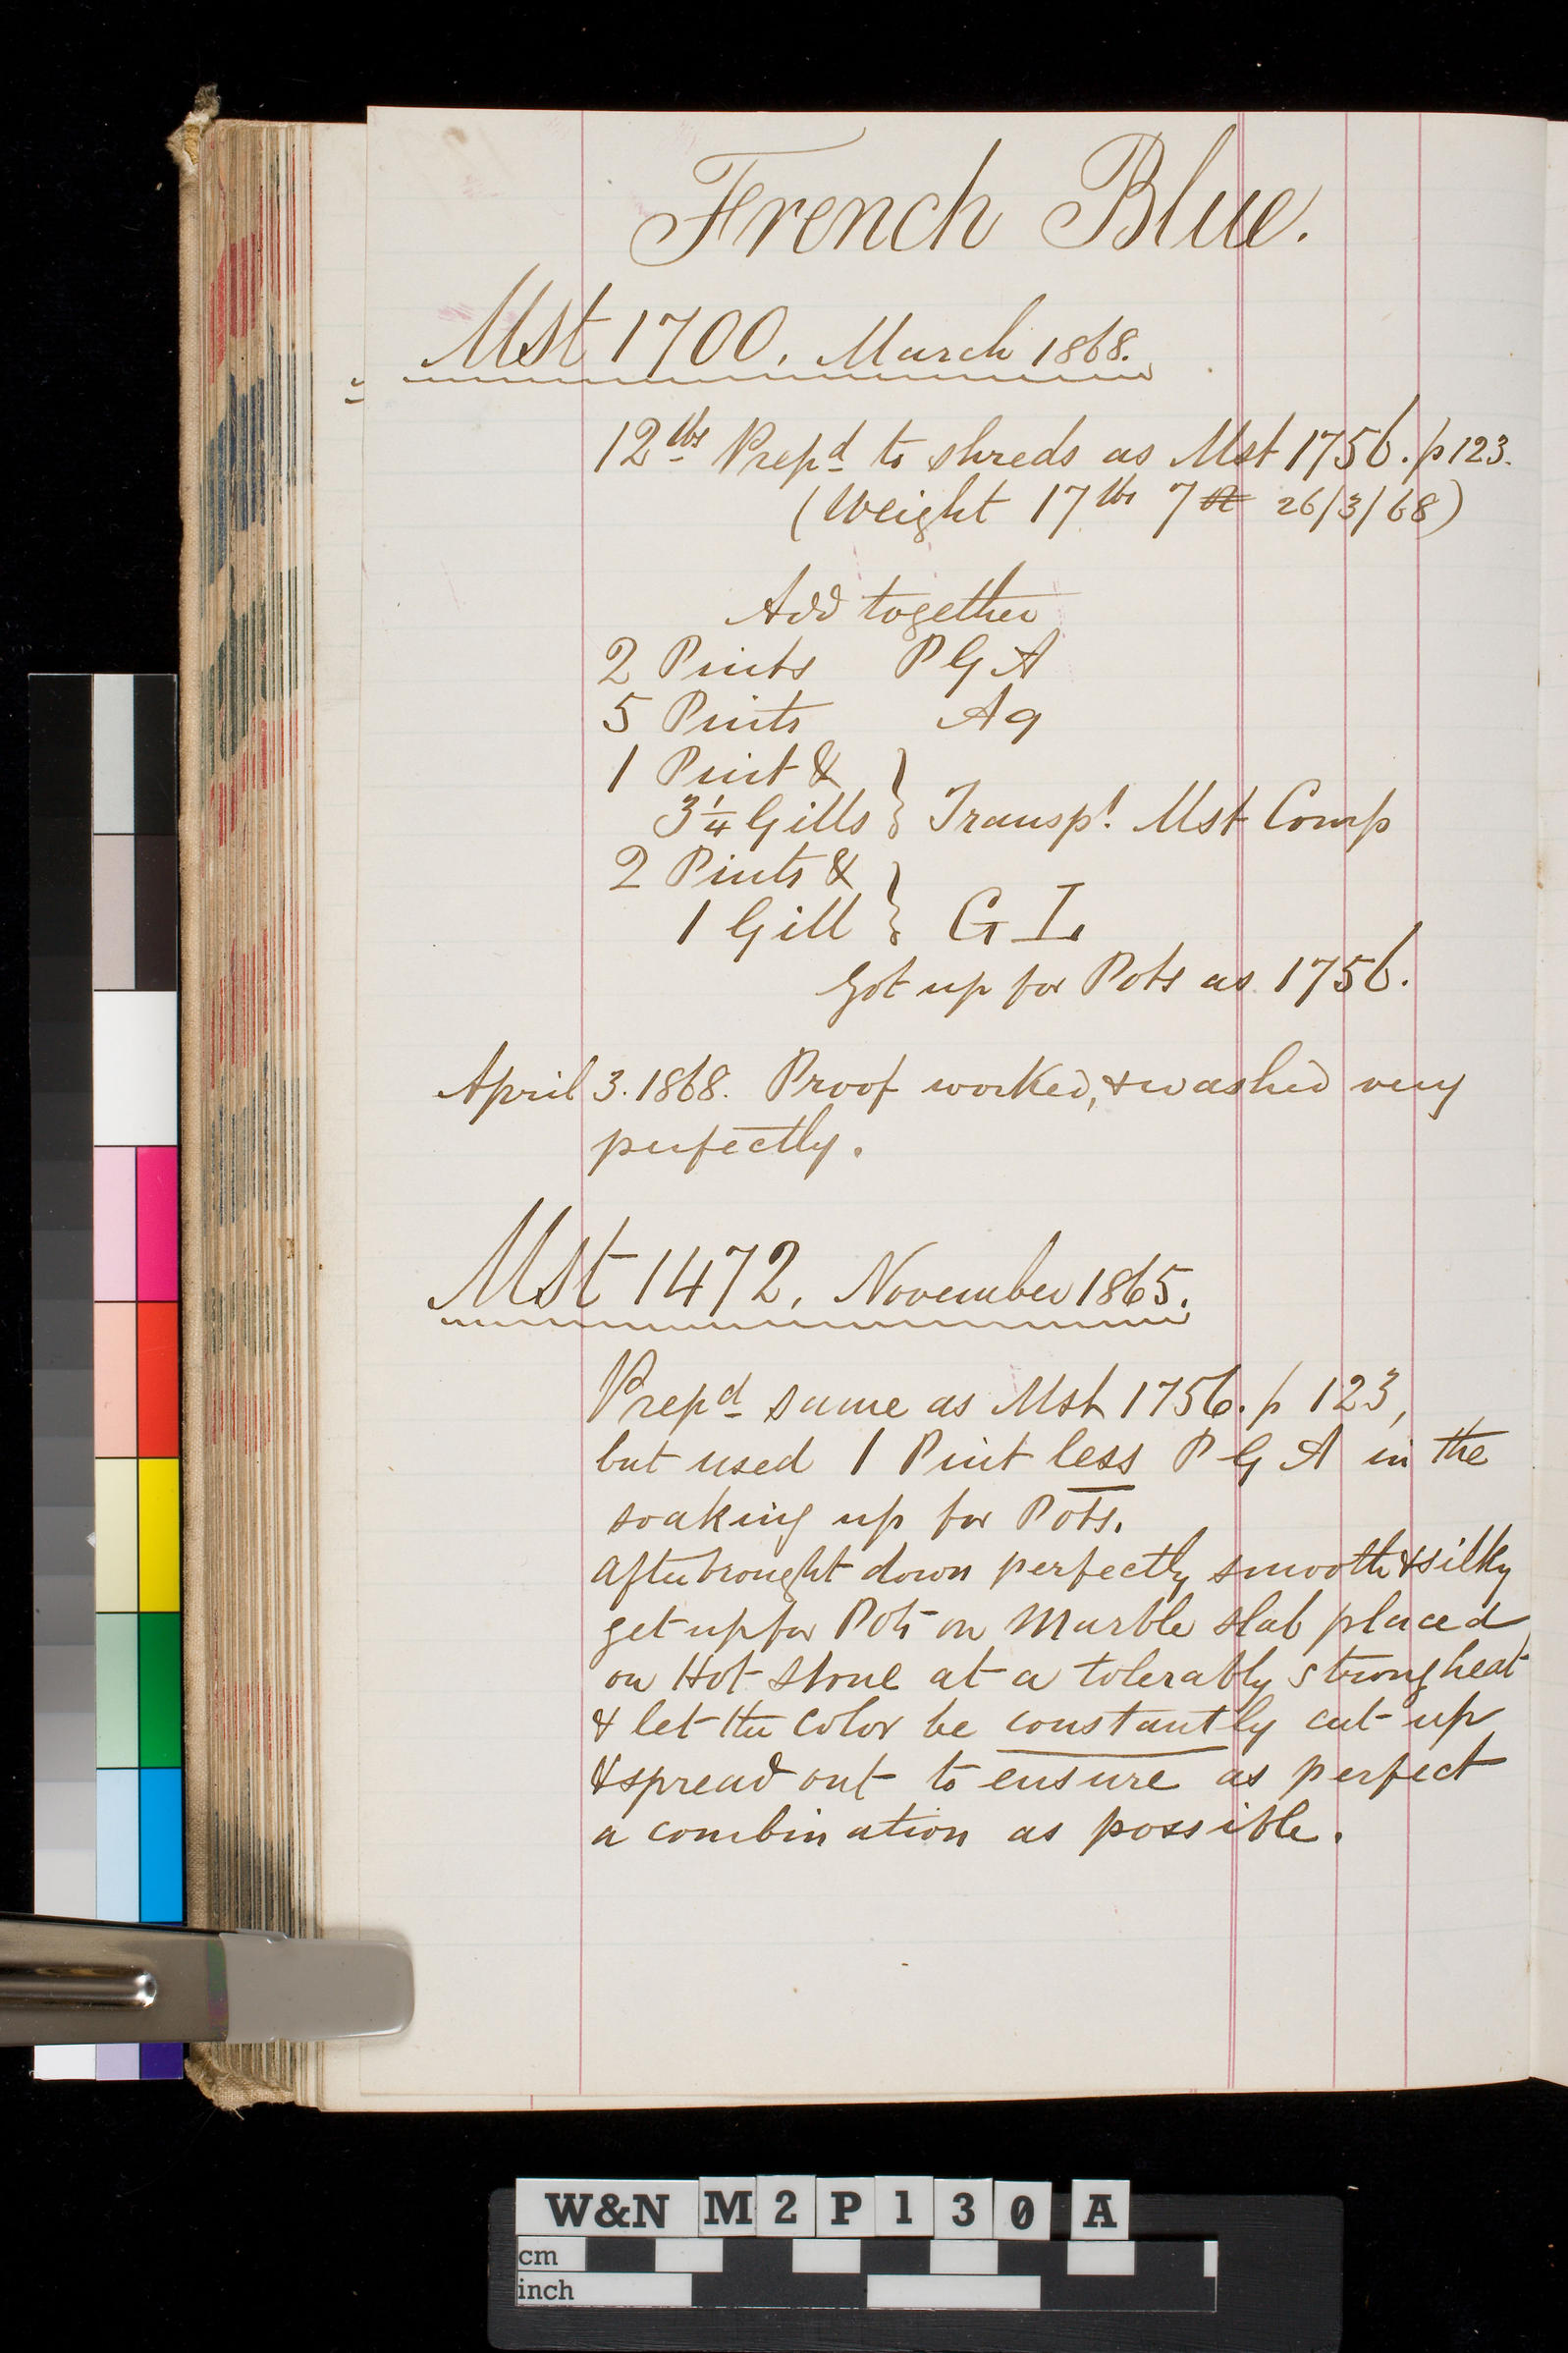 French Blue.
Mst 1700. March 1868.
12 lbs Prepd to shreds as Mst 1756. p 123.
(Weight 17 lbs 7 26/3/68)
Add together
2 Pints P G A
5 Pints Aq
1 Pint &
3 1/4 Gills } Transpt. Mst Comp
2 Pints &
1 Gill } G L
Got up for Pots as 1756.
April 3. 1868. Proof worked, & washed very
perfectly.
Mst 1472. November 1865.
Prepd same as Mst 1756. p 123,
but used 1 Pint less P G A in the
soaking up for Pots.
after brought down perfectly smooth & silky
get up for Pots on Marble slab placed
on Hot Stone at a tolerably strong heat
& let the Color be constantly cut up
& spread out to ensure as perfect
a combination as possible.
W&N M2P130 A
cm
inch